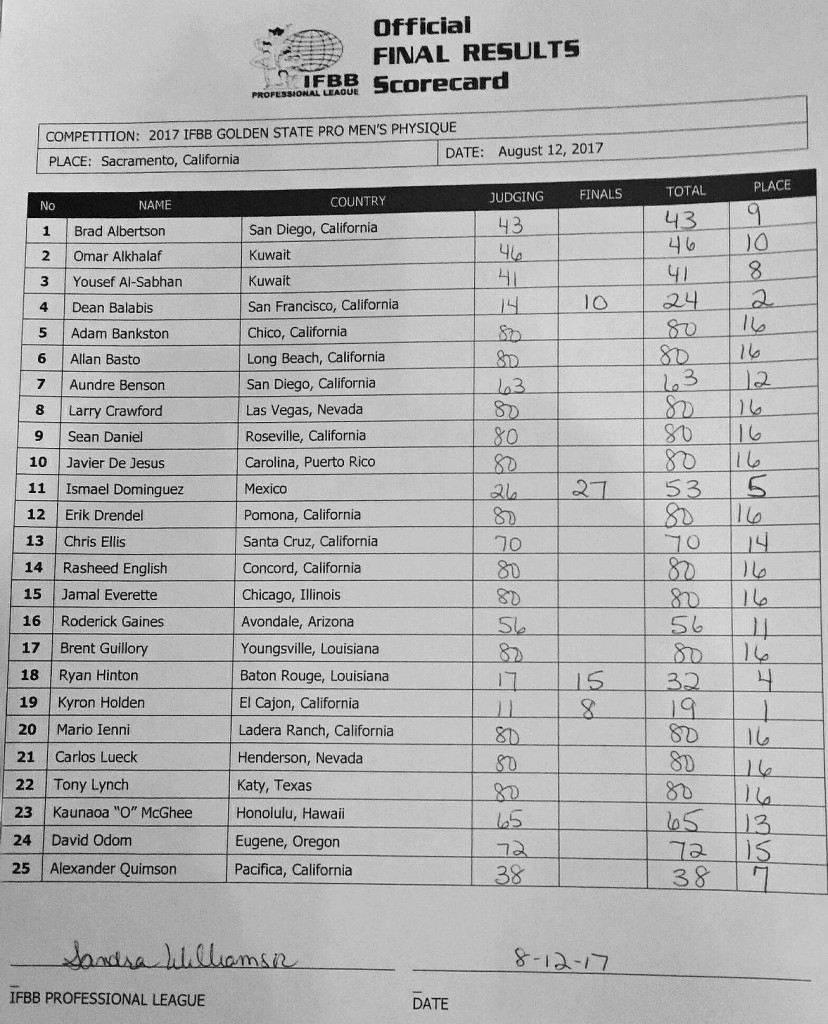 Official
FINAL RESULTS
Scorecard
IFBB
PROFESSIONAL LEAGUE
COMPETITION: 2017 IFBB GOLDEN STATE PRO MEN'S PHYSIQUE
PLACE: Sacramento, California DATE: August 12, 2017
No NAME COUNTRY JUDGING FINALS TOTAL PLACE
1 Brad Albertson San Diego, California 43 43 9
2 Omar Alkhalaf Kuwait 46 46 10
3 Yousef Al-Sabhan Kuwait 41 41 8
4 Dean Balabis San Francisco, California 14 10 24 2
5 Adam Bankston Chico, California 80 80 16
6 Allan Basto Long Beach, California 80 80 16
7 Aundre Benson San Diego, California 63 63 12
8 Larry Crawford Las Vegas, Nevada 80 80 16
9 Sean Daniel Roseville, California 80 80 16
10 Javier De Jesus Carolina, Puerto Rico 80 80 16
11 Ismael Dominguez Mexico 26 27 53 5
12 Erik Drendel Pomona, California 80 80 16
13 Chris Ellis Santa Cruz, California 70 70 14
14 Rasheed English Concord, California 80 80 16
15 Jamal Everette Chicago, Illinois 80 80 16
16 Roderick Gaines Avondale, Arizona 56 56 11
17 Brent Guillory Youngsville, Louisiana 80 80 16
18 Ryan Hinton Baton Rouge, Louisiana 17 15 32 4
19 Kyron Holden El Cajon, California 11 8 19 1
20 Mario Ienni Ladera Ranch, California 80 80 16
21 Carlos Lueck Henderson, Nevada 80 80 16
22 Tony Lynch Katy, Texas 80 80 16
23 Kaunaoa "O" McGhee Honolulu, Hawaii 65 65 13
24 David Odom Eugene, Oregon 72 72 15
25 Alexander Quimson Pacifica, California 38 38 7
Sandra Williamson 8-12-17
IFBB PROFESSIONAL LEAGUE DATE